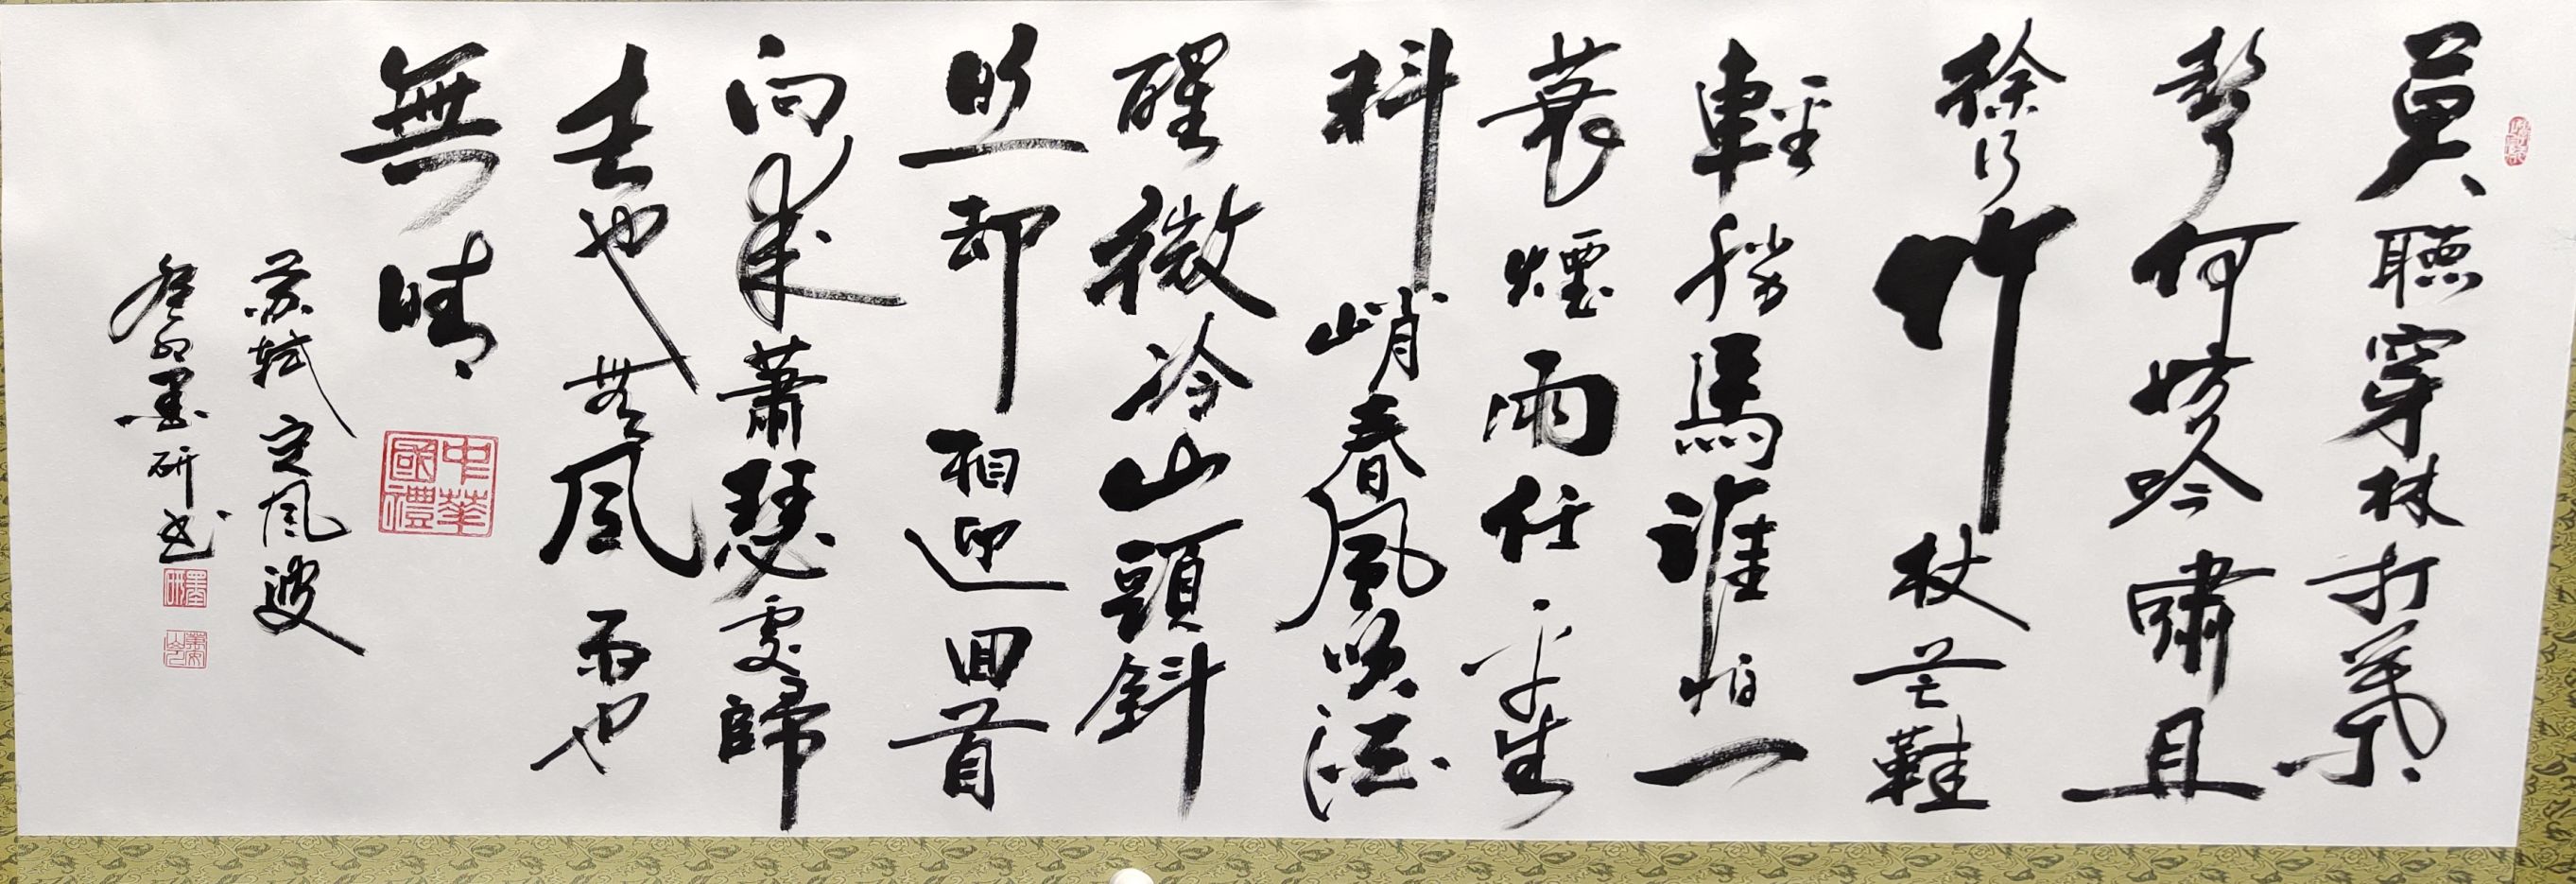 莫聴穿林打葉
聲何妨吟嘯且
徐行竹杖芒鞋
輕勝馬誰怕一
蓑煙雨任平生
料峭春風吹酒
醒微冷山頭斜
照却相迎回首
向來蕭瑟處歸
去也無風雨也
無晴
中華國禮
蘇軾定風波
癸卯墨研书
墨研